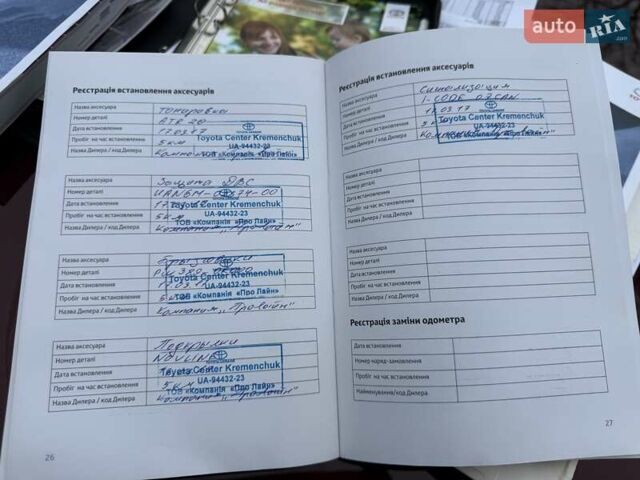 auto RIA.com
Реєстрація встановлення аксесуарів
Назва аксесуара Тонировка
Номер деталі ATR 20
Дата встановлення 17.03.17
Пробіг на час встановлення 5 км
Назва Дилера / код Дилера Компания
Toyota Center Kremenchuk
UA-94432-23
ТОВ «Компанія «Про Лайн»
Назва аксесуара Защита ДВС
Номер деталі
Дата встановлення
Пробіг на час встановлення 5 км
Назва Дилера / код Дилера Компания
Toyota Center Kremenchuk
UA-94432-23
ТОВ «Компанія «Про Лайн»
Назва аксесуара Брызговики
Номер деталі
Дата встановлення
Пробіг на час встановлення 5 км
Назва Дилера / код Дилера Компания
Toyota Center Kremenchuk
UA-94432-23
ТОВ «Компанія «Про Лайн»
Назва аксесуара Подкрылки
Номер деталі NOVLINE
Дата встановлення
Пробіг на час встановлення 5 км
Назва Дилера / код Дилера Компания
Toyota Center Kremenchuk
UA-94432-23
ТОВ «Компанія «Про Лайн»
26
Реєстрація встановлення аксесуарів
Назва аксесуара Сигнализация
Номер деталі
Дата встановлення 17.03.17
Пробіг на час встановлення 5 км
Назва Дилера / код Дилера
Toyota Center Kremenchuk
UA-94432-23
Назва аксесуара
Номер деталі
Дата встановлення
Пробіг на час встановлення
Назва Дилера / код Дилера
Назва аксесуара
Номер деталі
Дата встановлення
Пробіг на час встановлення
Назва Дилера / код Дилера
Реєстрація заміни одометра
Дата встановлення
Номер наряд-замовлення
Пробіг на час встановлення
Найменування/код Дилера
27